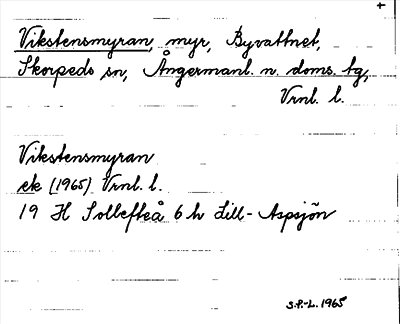 +
Vikstensmyran, myr, Byvattnet,
Skorpeds sn, Ångermanl. n. doms. tg,
Vrnl. l.
Vikstensmyran
ek (1965) Vrnl. l.
19 H Sollefteå 6 h Lill-Aspsjön
S.P.-L. 1965